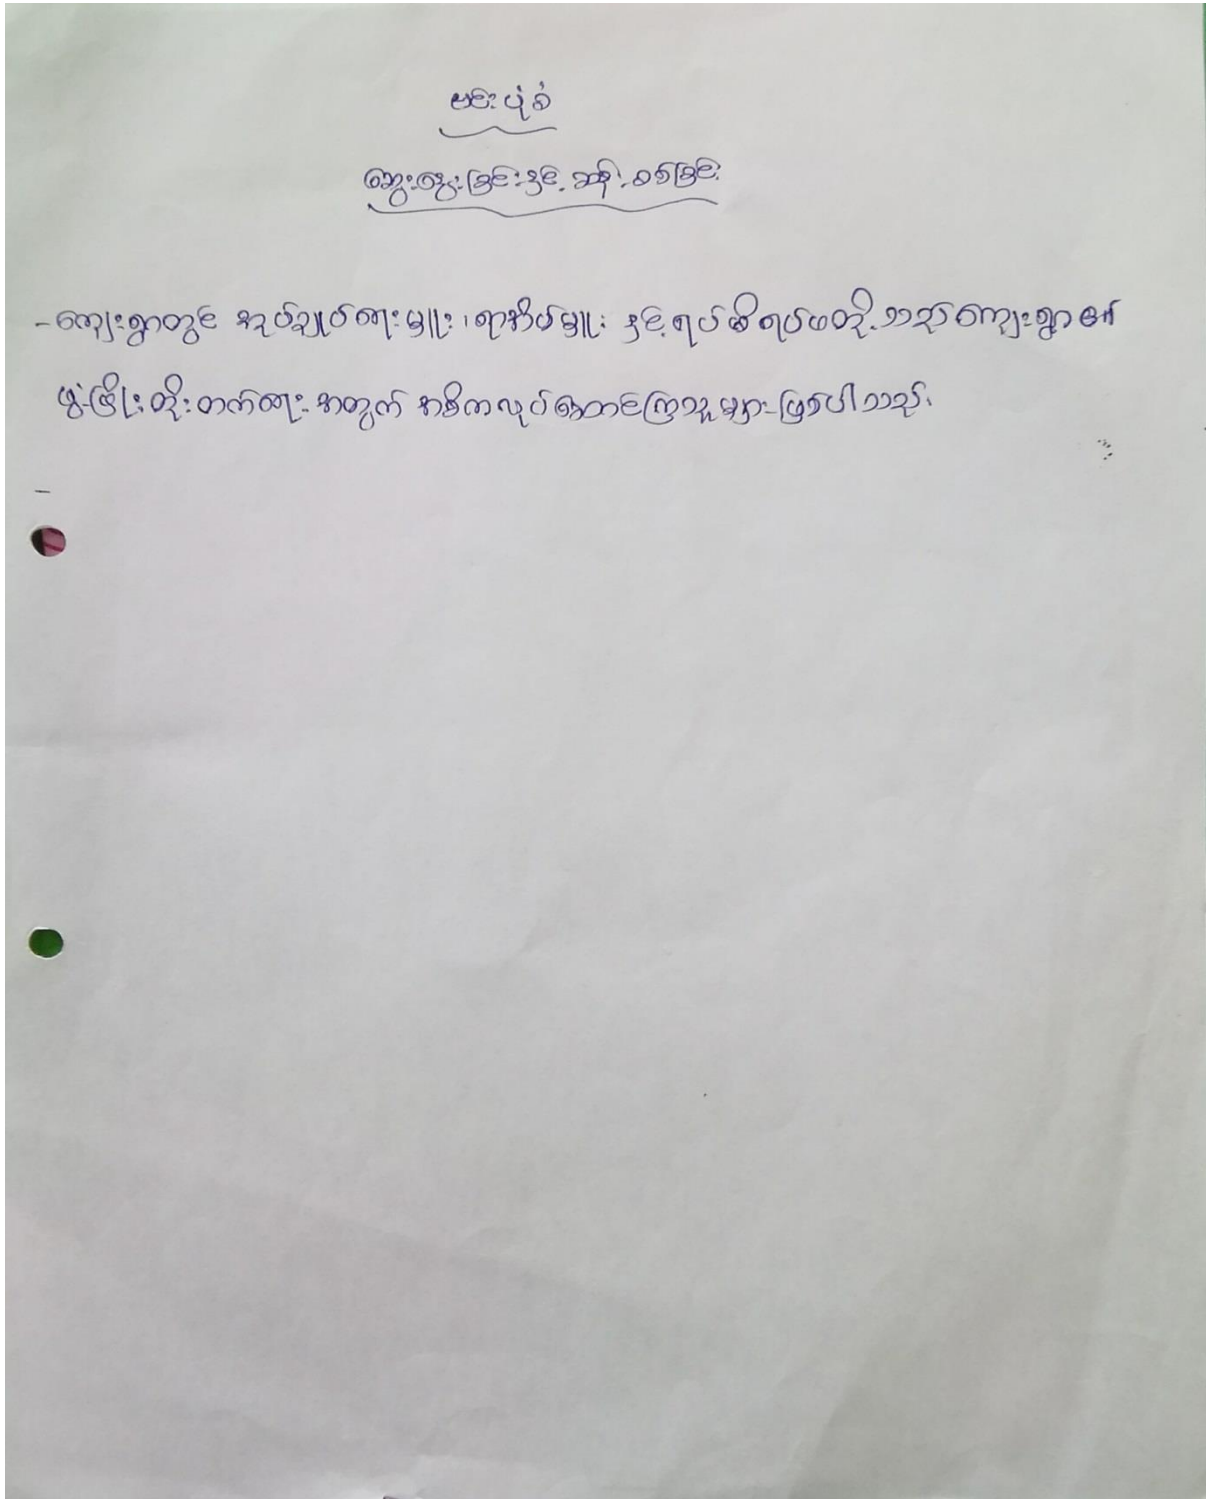 မင်းပုံစံ
ဆွေးနွေးခြင်းနှင့် ဆန်းစစ်ခြင်း
- ကျေးရွာတွင် အုပ်ချုပ်ရေးမှူး၊ ရာအိမ်မှူး နှင့် ရပ်မိရပ်ဖတို့သည် ကျေးရွာ၏
ဖွံ့ဖြိုးတိုးတက်ရေးအတွက် အဓိကလုပ်ဆောင်ကြသူများ ဖြစ်ပါသည်၊
-